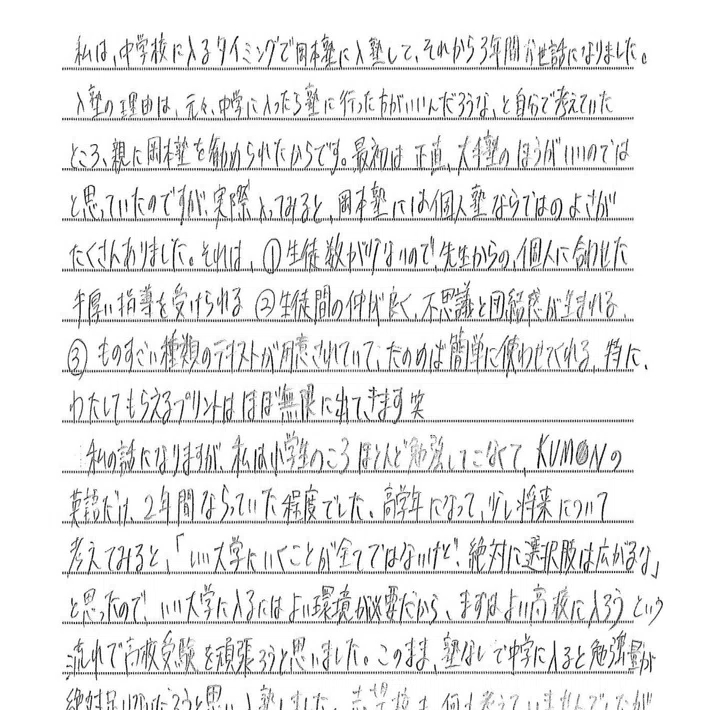 私は、中学校に入るタイミングで岡本塾に入塾して、それから3年間お世話になりました。
入塾の理由は、元々、中学に入ったら塾に行った方がいいんだろうな、と自分で考えていた
ところ、親に岡本塾を勧められたからです。最初は正直、大手塾のほうがいいのでは
と思っていたのですが、実際入ってみると、岡本塾には個人塾ならではのよさが
たくさんありました。それは、①生徒数が少ないので先生からの、個人に合わせた
手厚い指導を受けられる ②生徒間の仲が良く、不思議と団結感が生まれる、
③ものすごい種類のテキストが用意されていて、たのめば簡単に使わせてくれる。特に、
わたしてもらえるプリントはほぼ無限に出てきます笑
私の話になりますが、私は小学生のころほとんど勉強してこなくて、KUMONの
英語だけ、2年間ならっていた程度でした。高学年になって、少し将来について
考えてみると、「いい大学にいくことが全てではないけど、絶対に選択肢は広がるな」
と思ったので、いい大学に入るにはよい環境が必要だから、まずはよい高校に入ろうという
流れで高校受験を頑張ろうと思いました。このまま、塾なしで中学に入ると勉強量が
絶対足りないだろうと思い入塾しました。志望校も何も考えていませんでしたが